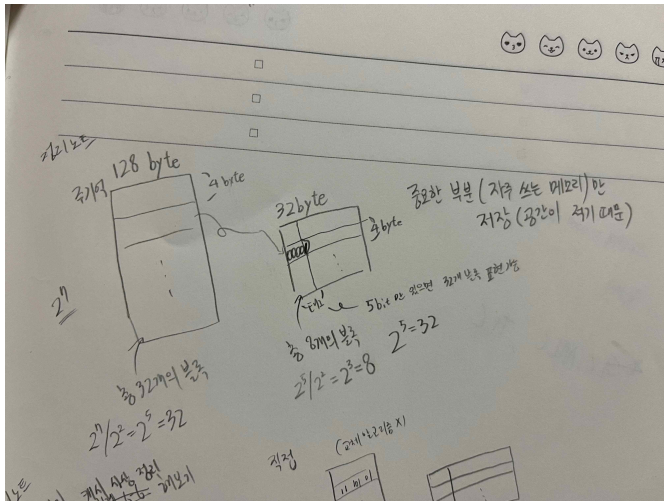 정리노트
128 byte
주기억
4 byte
2⁷
총 32개의 블록
2⁷/2²=2⁵=32
32byte
4byte
0000
"태그"
5bit만 있으면 32개 블록 표현가능
총 8개의 블록
2⁵/2²=2³=8
2⁵=32
중요한 부분(자주 쓰는 메모리)만
저장(공간이 적기 때문)
노트
캐시 사상 정리
해보기
직접
(교체 알고리즘 X)